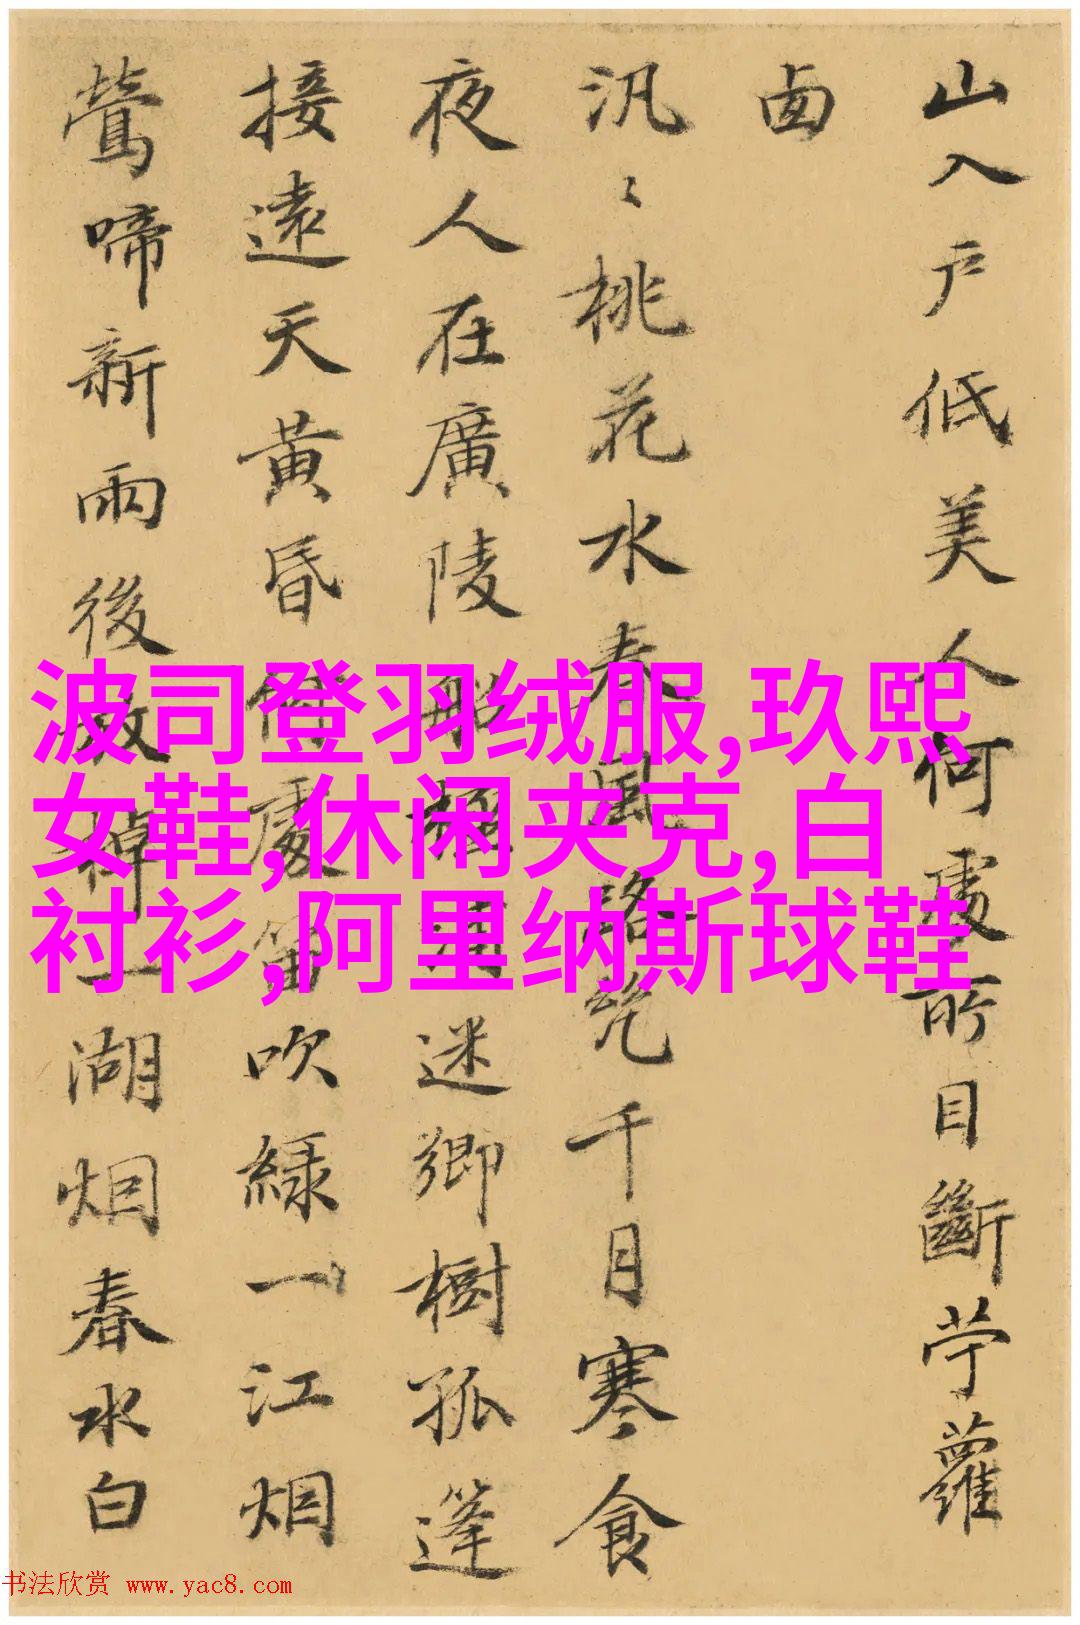 山入户低美人何處所目斷苧蘿
卥
汎〻桃花水春風路绝千月寒食
夜人在廣陵船輕月迷卿樹孤篷
接遠天黄昏何處笛吹緑一江烟
鶯啼新雨後放棹一湖烟春水白
波司登羽绒服,玖熙
女鞋,休闲夹克,白
衬衫,阿里纳斯球鞋
书法欣赏 www.yac8.com